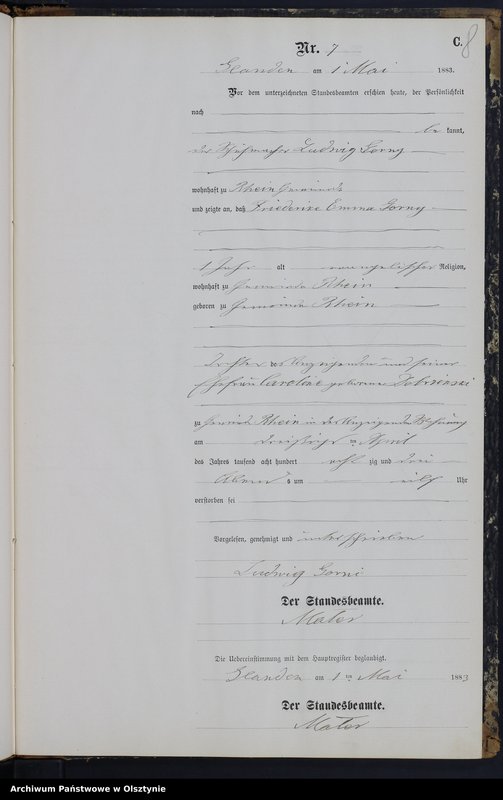 Nr. 7
C.
8
Glanden am 1 Mai 1883.
Vor dem unterzeichneten Standesbeamten erschien heute, der Persönlichkeit
nach
be kannt,
der Schuhmacher Ludwig Gorny
wohnhaft zu Rhein Gemeinde
und zeigte an, daß Friederike Emma Gorny
1 Jahr alt evangelischer Religion,
wohnhaft zu Gemeinde Rhein
geboren zu Gemeinde Rhein
Tochter des Anzeigenden und seiner
Ehefrau Caroline geborene
zu Gemeinde Rhein in des Anzeigenden Wohnung
am dreißigsten April
des Jahres tausend acht hundert acht zig und drei
Abend s um Uhr
verstorben sei
Vorgelesen, genehmigt und unterschrieben
Ludwig Gorni
Der Standesbeamte.
Mator
Die Uebereinstimmung mit dem Hauptregister beglaubigt.
Glanden am 1 ten Mai 1883
Der Standesbeamte.
Mator
Archiwum Państwowe w Olsztynie